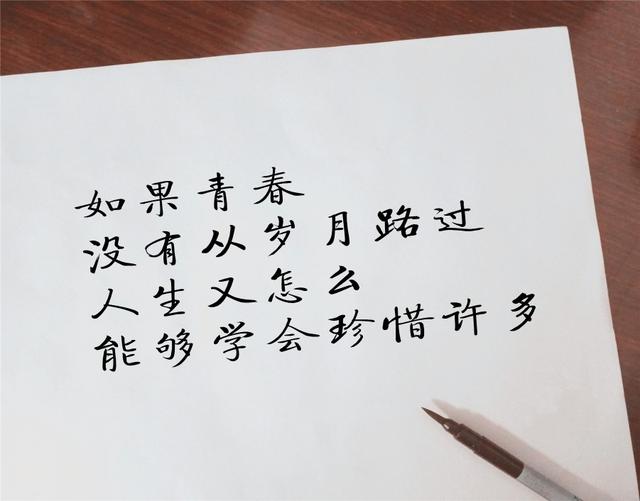 如果青春
没有从岁月路过
人生又怎么
能够学会珍惜许多